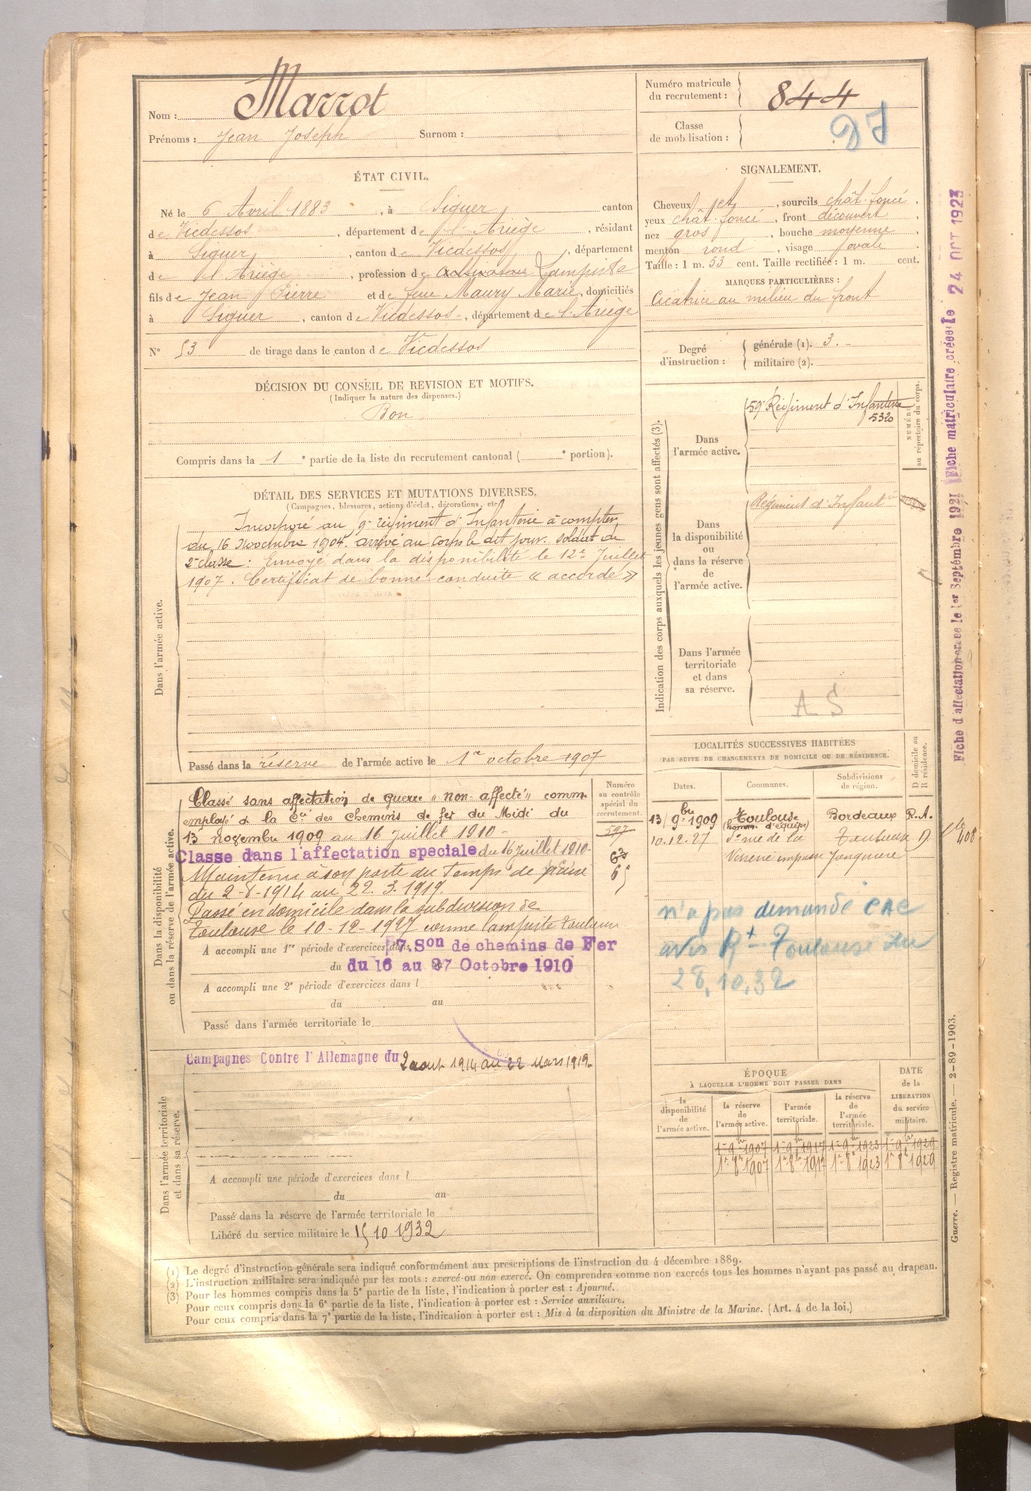 Nom : Marrot
Prénoms : Jean Joseph Surnom :
Numéro matricule du recrutement : 844
Classe de mobilisation :
ÉTAT CIVIL.
Né le 6 Avril 1883, à Siguer canton
de Vicdessos, département de l'Ariège, résidant
à Siguer, canton de Vicdessos, département
de l'Ariège, profession de cultivateur Lampiste
fils de Jean Pierre et de feue Maury Marie, domiciliés
à Siguer, canton de Vicdessos, département de l'Ariège
N° 53 de tirage dans le canton de Vicdessos
SIGNALEMENT.
Cheveux jet, sourcils chât. foncé,
yeux chât. foncé, front découvert
nez gros, bouche moyenne
menton rond, visage ovale
Taille : 1 m. 53 cent. Taille rectifiée : 1 m. cent.
MARQUES PARTICULIÈRES :
Cicatrice au milieu du front
Degré d'instruction : générale (1). 3.
militaire (2).
DÉCISION DU CONSEIL DE REVISION ET MOTIFS.
(Indiquer la nature des dispenses.)
Bon
Compris dans la 1e partie de la liste du recrutement cantonal ( e portion).
DÉTAIL DES SERVICES ET MUTATIONS DIVERSES.
(Campagnes, blessures, actions d'éclat, décorations, etc.)
Dans l'armée active.
Incorporé au 9e régiment d'Infanterie à compter
du 16 Novembre 1904. arrivé au corps le dit jour. soldat de
2e classe : Envoyé dans la disponibilité le 12 Juillet
1907. Certificat de bonne conduite « accordé »
Passé dans la réserve de l'armée active le 1er octobre 1907
Indication des corps auxquels les jeunes gens sont affectés (3).
NUMÉRO au répertoire du corps.
Dans l'armée active.
59e Régiment d'Infanterie
5320
Dans la disponibilité ou dans la réserve de l'armée active.
Régiment d'Infant
Dans l'armée territoriale et dans sa réserve.
A S
Dans la disponibilité ou dans la réserve de l'armée active.
Numéro au contrôle spécial du recrutement.
Classé sans affectation de guerre "non affecté" comme
employé à la Cie des chemins de fer du Midi du
13 novembre 1909 au 16 juillet 1910 -
Classé dans l'affectation spéciale du 16 juillet 1910 -
Maintenu à son poste du temps de paix
du 2-8-1914 au 22.3.1919
Passé en domicile dans la subdivision de
Toulouse le 10-12-1927 comme lampiste Toulouse
A accompli une 1re période d'exercices dans 7 Son de chemins de Fer
du 16 au 27 Octobre 1910
A accompli une 2e période d'exercices dans l
du au
Passé dans l'armée territoriale le
LOCALITÉS SUCCESSIVES HABITÉES
PAR SUITE DE CHANGEMENTS DE DOMICILE OU DE RÉSIDENCE.
Dates. Communes. Subdivisions de région. D domicile ou R résidence.
13 9bre 1909 Toulouse Bordeaux R.A.
(homme d'équipe)
10.12.27 Toulouse D
n'a pas demandé CAC
avis Rt Toulouse du
28.10.32
Dans l'armée territoriale et dans sa réserve.
Campagnes Contre l'Allemagne du 2 aout 1914 au 22 Mars 1919.
A accompli une période d'exercices dans l
du au
Passé dans la réserve de l'armée territoriale le
Libéré du service militaire le 15 10 1932
ÉPOQUE
À LAQUELLE L'HOMME DOIT PASSER DANS
la disponibilité de l'armée active.
la réserve de l'armée active.
l'armée territoriale.
la réserve de l'armée territoriale.
DATE de la LIBÉRATION du service militaire.
1er 9bre 1907 1er 9bre 1917 1er 9bre 1923 1er 9bre 1929
1er 8bre 1907 1er 8bre 1917 1er 8bre 1923 1er 8bre 1929
(1) Le degré d'instruction générale sera indiqué conformément aux prescriptions de l'instruction du 4 décembre 1889.
(2) L'instruction militaire sera indiquée par les mots : exercé ou non exercé. On comprendra comme non exercés tous les hommes n'ayant pas passé au drapeau.
(3) Pour les hommes compris dans la 5e partie de la liste, l'indication à porter est : Ajourné.
Pour ceux compris dans la 6e partie de la liste, l'indication à porter est : Service auxiliaire.
Pour ceux compris dans la 7e partie de la liste, l'indication à porter est : Mis à la disposition du Ministre de la Marine. (Art. 4 de la loi.)
Fiche d'affectation créée le 1er Septembre 1921 Fiche matriculaire créée le 24 OCT 1923
Guerre. — Registre matricule. — 2-89-1903.